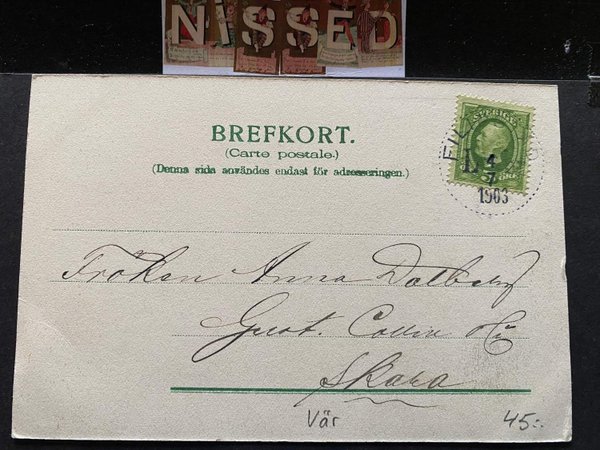 NISSED
BREFKORT.
(Carte postale.)
(Denna sida användes endast för adresseringen.)
SVERIGE
4
7
1903
Fröken Anna
Gust.
Skara
Vär
45:-